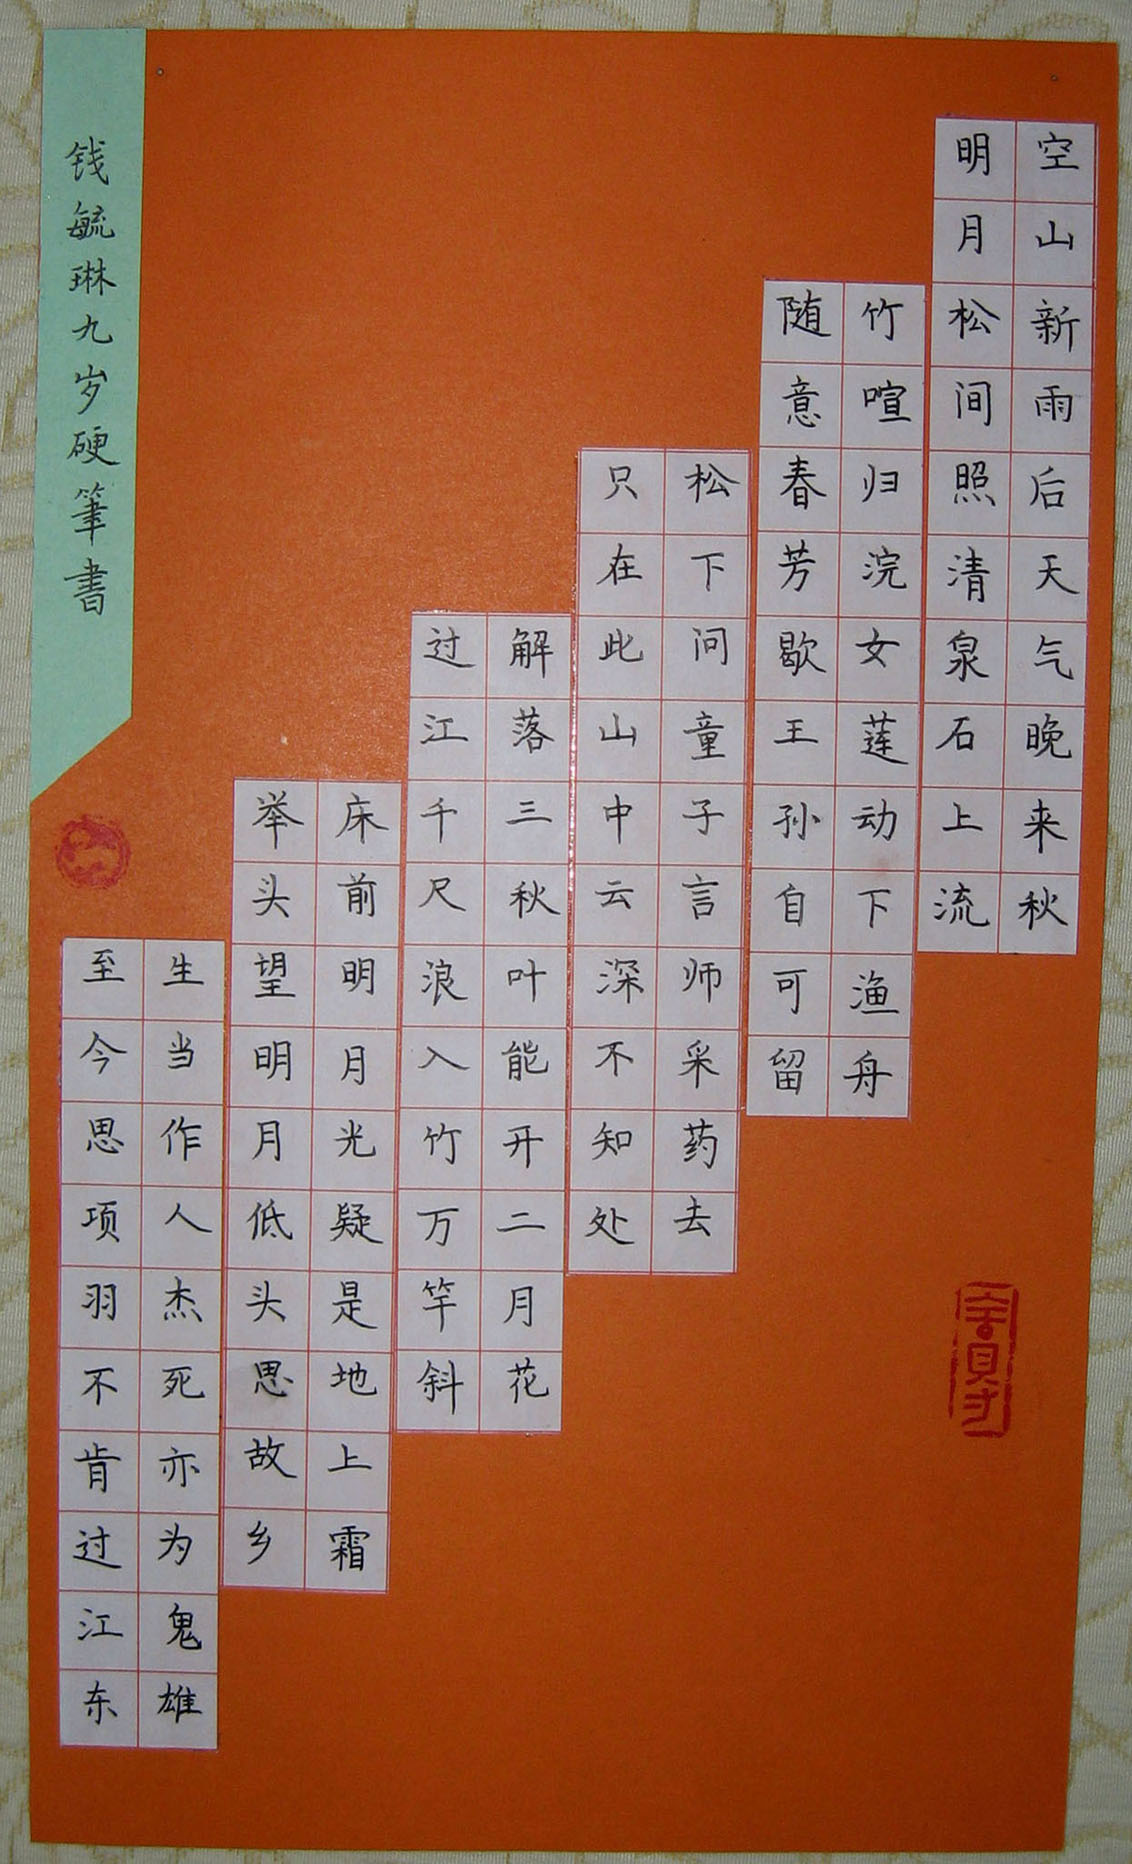 空山新雨后天气晚来秋
明月松间照清泉石上流
竹喧归浣女莲动下渔舟
随意春芳歇王孙自可留
松下问童子言师采药去
只在此山中云深不知处
解落三秋叶能开二月花
过江千尺浪入竹万竿斜
床前明月光疑是地上霜
举头望明月低头思故乡
生当作人杰死亦为鬼雄
至今思项羽不肯过江东
钱毓琳九岁硬筆書